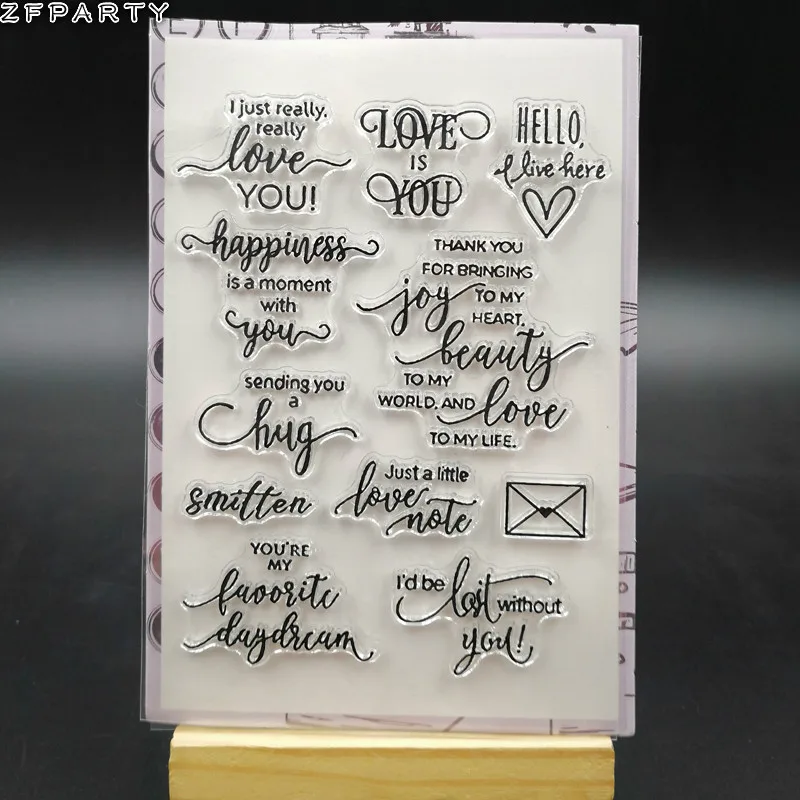 ZFPARTY
I just really,
really
love
YOU!
LOVE
IS
YOU
HELLO,
I live here
happiness
is a moment
with
you
THANK YOU
FOR BRINGING
joy TO MY
HEART,
beauty
TO MY
WORLD, AND love
TO MY LIFE.
sending you
a
hug
smitten
Just a little
love note
YOU'RE
MY
favorite
daydream
I'd be lost without
you!